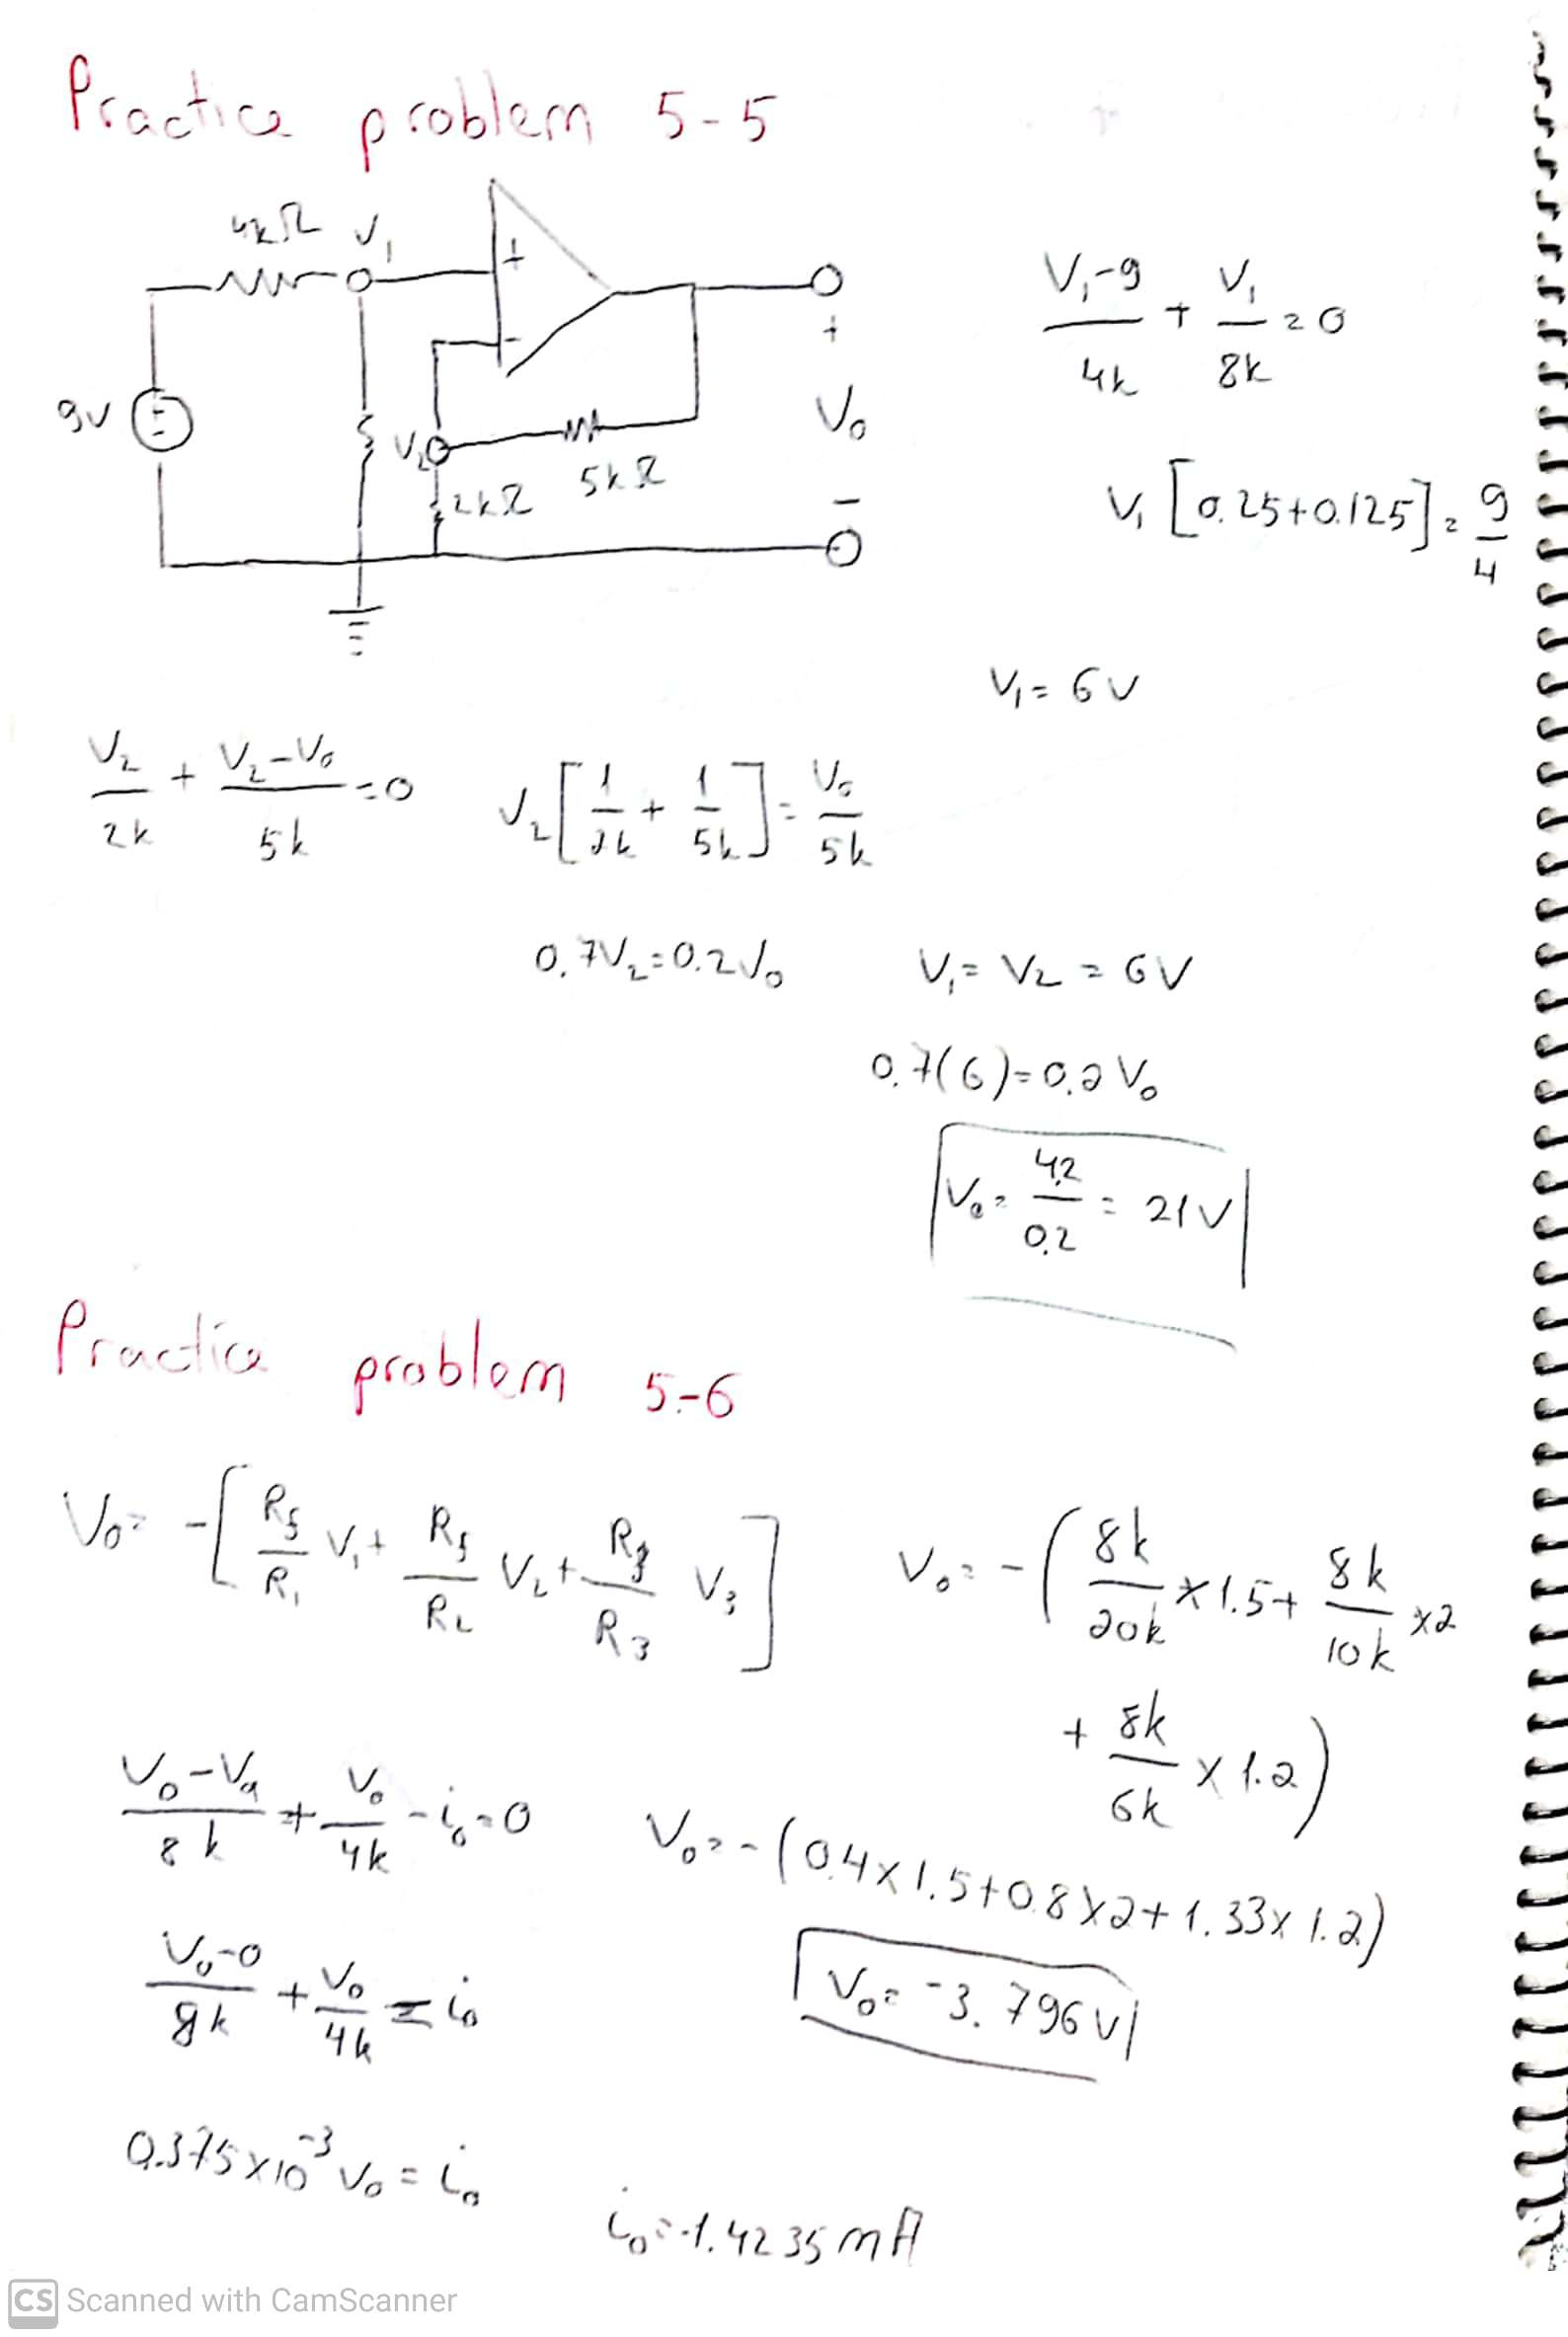 Practice problem 5-5
4kΩ V₁
+
-
9V
+
-
V₂
5kΩ
2kΩ
+
V₀
-
(V₁-9)/4k + V₁/8k = 0
V₁ [0.25+0.125] = 9/4
V₁ = 6V
V₂/2k + (V₂-V₀)/5k = 0 V₂[1/2k + 1/5k] = V₀/5k
0.7V₂=0.2V₀ V₁ = V₂ = 6V
0.7(6)=0.2 V₀
V₀ = 4.2/0.2 = 21V
Practice problem 5-6
V₀ = -[Rf/R₁ V₁ + Rf/R₂ V₂ + Rf/R₃ V₃] V₀ = -(8k/20k x1.5 + 8k/10k x2
+ 8k/6k x 1.2)
(V₀-Va)/8k + V₀/4k - i₀ = 0 V₀ = -(0.4x1.5+0.8x2+1.33x1.2)
(V₀-0)/8k + V₀/4k = i₀ V₀ = -3.796V
0.375x10⁻³ V₀ = i₀
i₀ = -1.4235 mA
CS Scanned with CamScanner